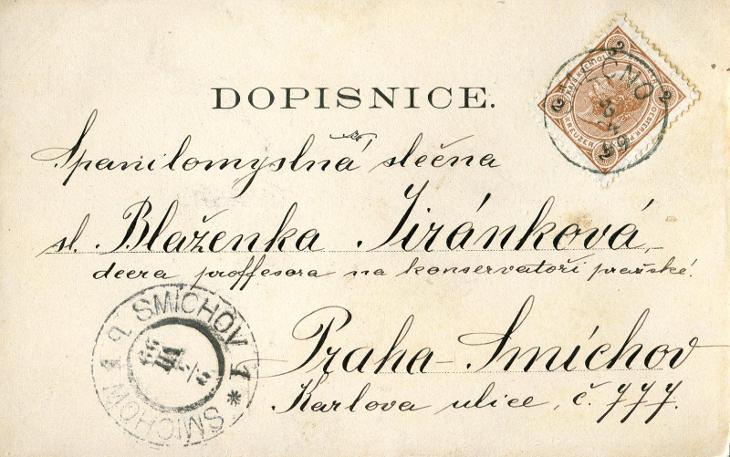 DOPISNICE.
Spanilomyslná slečna
sl. Blaženka Jiránková,
dcera proffesora na konservatoři pražské.
Praha-Smíchov
Karlova ulice, č. 777.
SMÍCHOV 1
SMICHOW 1
2
2